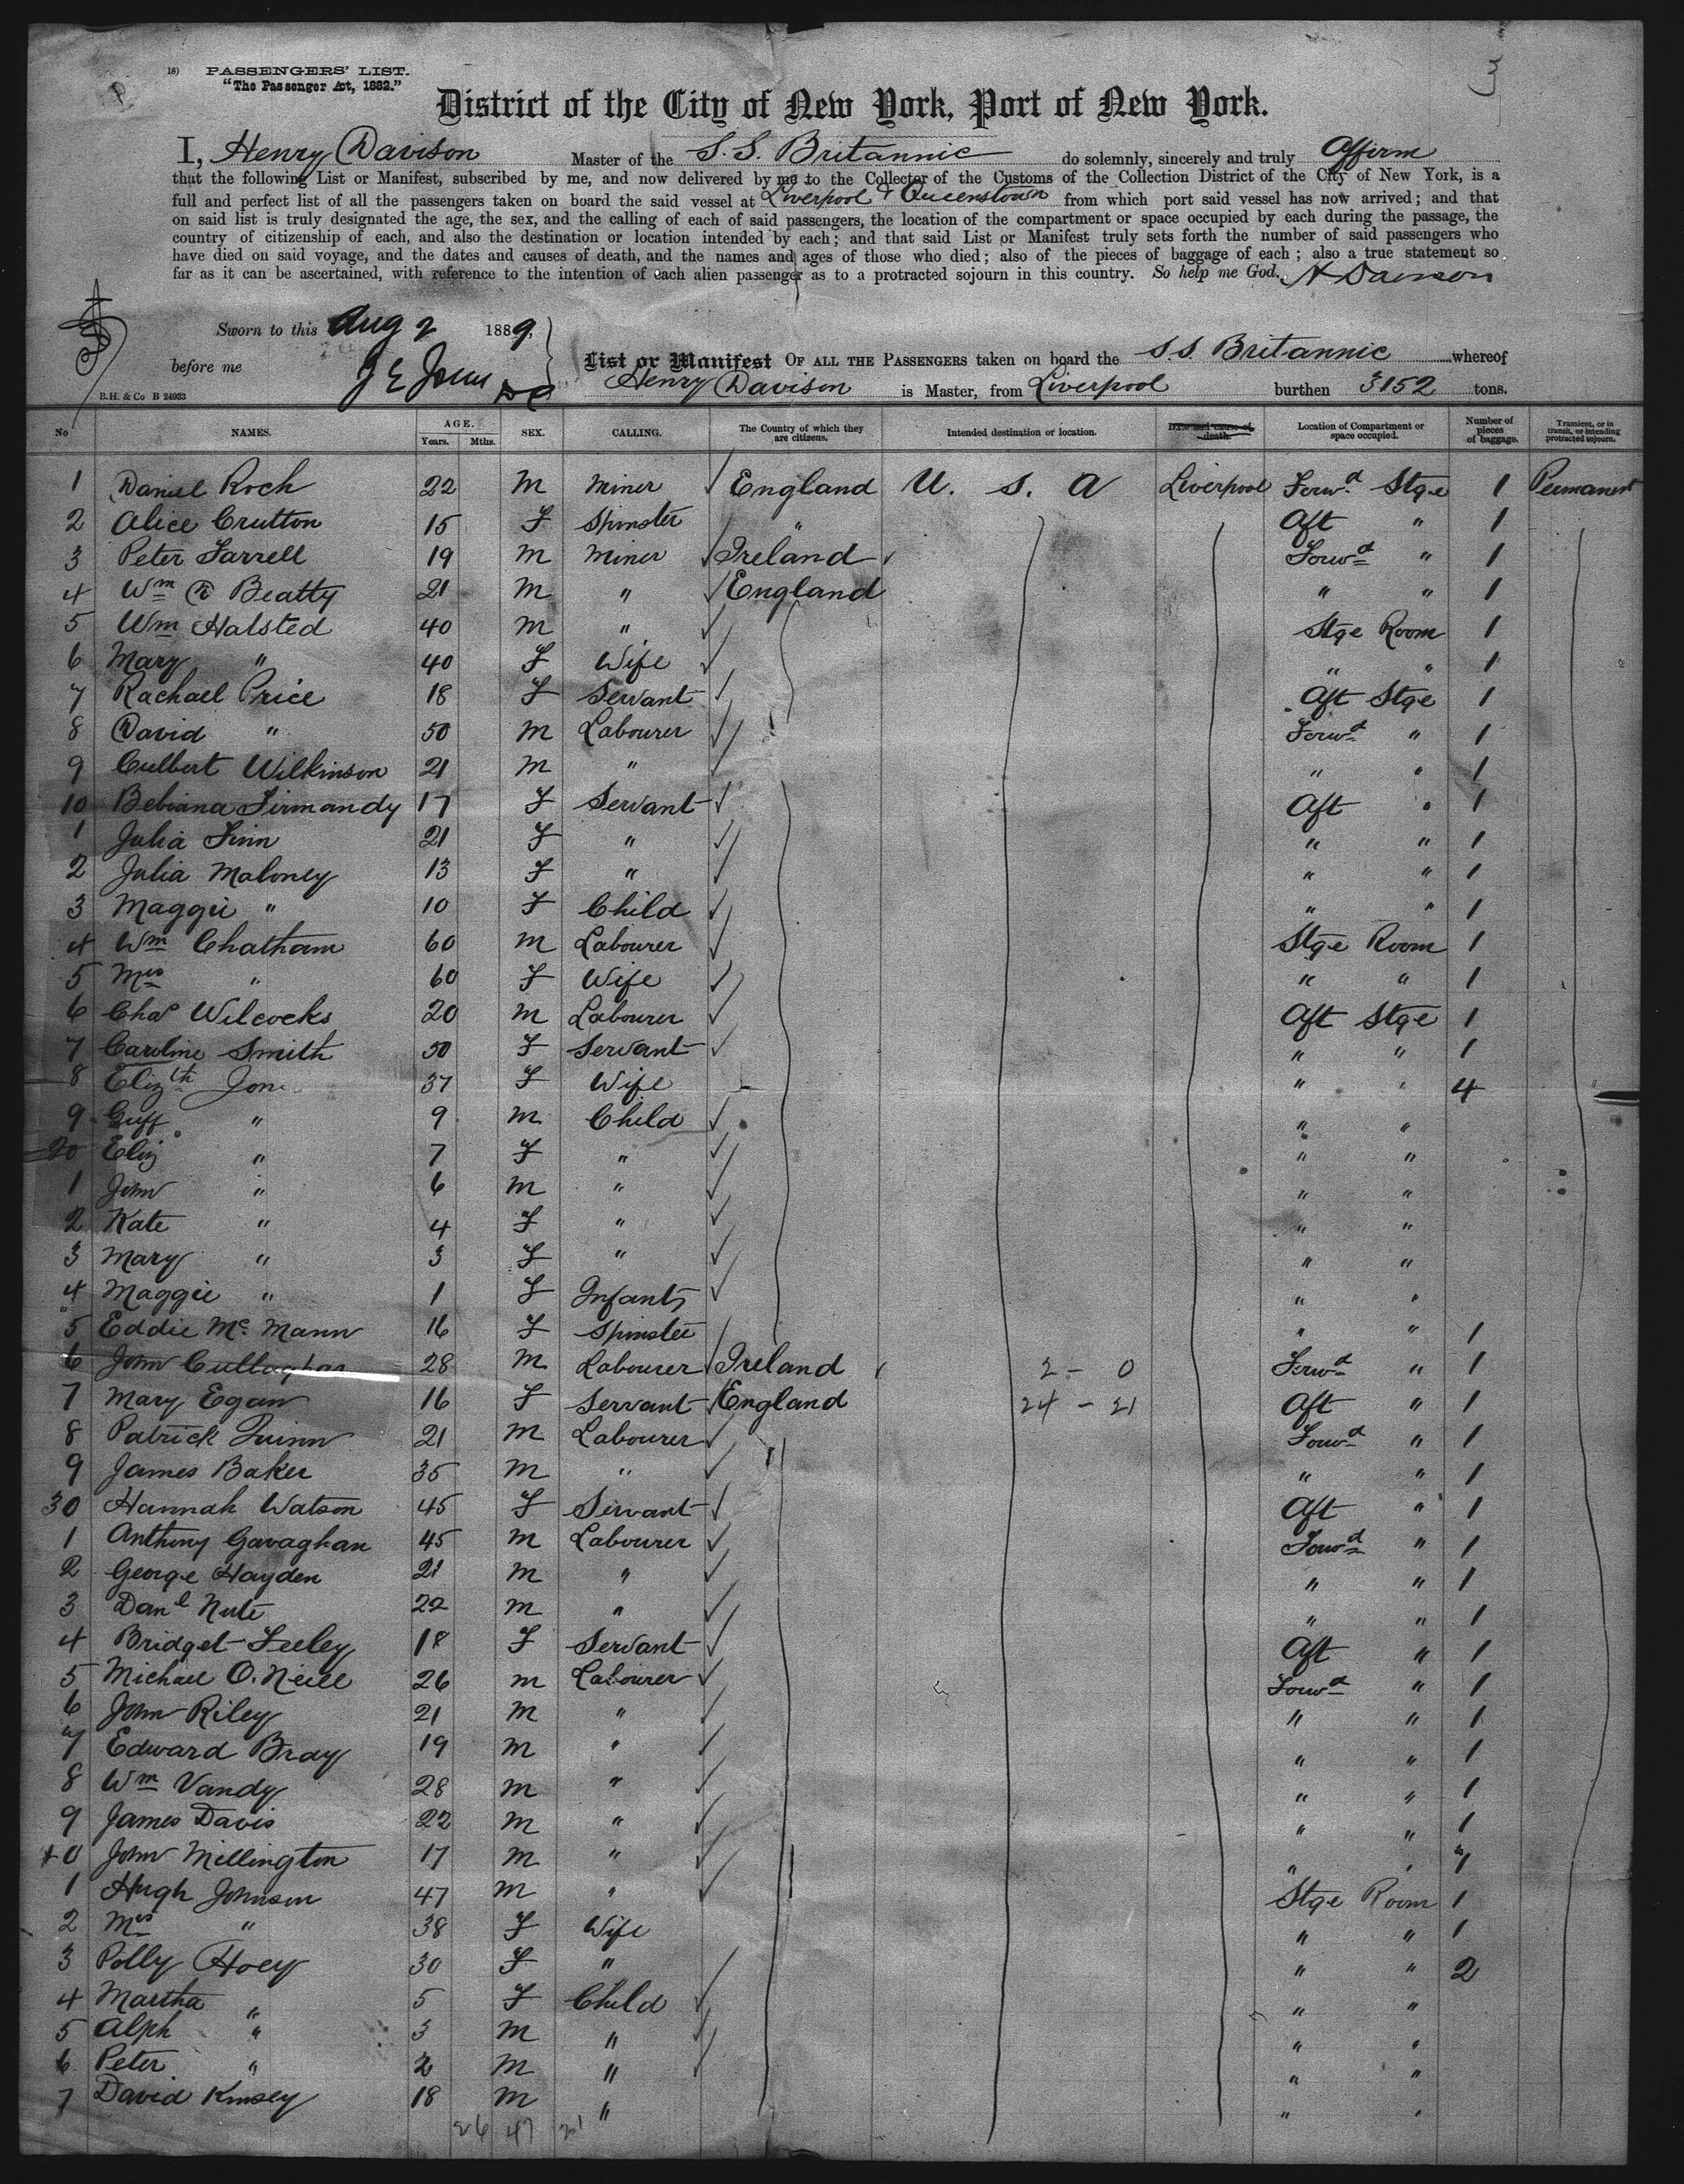 18) PASSENGERS' LIST.
"The Passenger Act, 1882."
3
District of the City of New York, Port of New York.
I, Henry Davison Master of the S. S. Britannic do solemnly, sincerely and truly Affirm
that the following List or Manifest, subscribed by me, and now delivered by me to the Collector of the Customs of the Collection District of the City of New York, is a
full and perfect list of all the passengers taken on board the said vessel at Liverpool & Queenstown from which port said vessel has now arrived; and that
on said list is truly designated the age, the sex, and the calling of each of said passengers, the location of the compartment or space occupied by each during the passage, the
country of citizenship of each, and also the destination or location intended by each; and that said List or Manifest truly sets forth the number of said passengers who
have died on said voyage, and the dates and causes of death, and the names and ages of those who died; also of the pieces of baggage of each; also a true statement so
far as it can be ascertained, with reference to the intention of each alien passenger as to a protracted sojourn in this country. So help me God. H Davison
Sworn to this Aug 2 1889.
before me
List or Manifest OF ALL THE PASSENGERS taken on board the S.S. Britannic whereof
Henry Davison is Master, from Liverpool burthen 3152 tons.
B.H. & Co B 24933
No NAMES. AGE. Years. Mths. SEX. CALLING. The Country of which they are citizens. Intended destination or location. Date and cause of death. Location of Compartment or space occupied. Number of pieces of baggage. Transient, or in transit, or intending protracted sojourn.
1 Daniel Roch 22 M Miner England U. S. A Liverpool Forwd Stge 1 Permanent
2 Alice Crutton 15 F Spinster " Aft " 1
3 Peter Farrell 19 M Miner Ireland Forwd " 1
4 Wm Beatty 21 M " England " " 1
5 Wm Halsted 40 M " Stge Room 1
6 Mary " 40 F Wife " " 1
7 Rachael Price 18 F Servant Aft Stge 1
8 David " 50 M Labourer Forwd " 1
9 Culbert Wilkinson 21 M " " " 1
10 Bebiana Firmandy 17 F Servant Aft " 1
1 Julia Finn 21 F " " " 1
2 Julia Maloney 13 F " " " 1
3 Maggie " 10 F Child " " 1
4 Wm Chatham 60 M Labourer Stge Room 1
5 Mrs " 60 F Wife " " 1
6 Chas Wilcocks 20 M Labourer Aft Stge 1
7 Caroline Smith 50 F Servant " " 1
8 Elizth Jon 37 F Wife " " 4
9 Guff " 9 M Child " "
20 Eliz " 7 F " " "
1 John " 6 M " " "
2 Kate " 4 F " " "
3 Mary " 3 F " " "
4 Maggie " 1 F Infant " "
5 Eddie Mc Mann 16 F Spinster " " 1
6 John 28 M Labourer Ireland 2 - 0 Forwd " 1
7 Mary Egan 16 F Servant England 24 - 21 Aft " 1
8 Patrick Quinn 21 M Labourer Forwd " 1
9 James Baker 35 M " " " 1
30 Hannah Watson 45 F Servant Aft " 1
1 Anthony Gavaghan 45 M Labourer Forwd " 1
2 George Hayden 21 M " " " 1
3 Danl Nute 22 M " " " 1
4 Bridget Feeley 18 F Servant Aft " 1
5 Michael O.Neill 26 M Labourer Forwd " 1
6 John Riley 21 M " " " 1
7 Edward Bray 19 M " " " 1
8 Wm Vandy 28 M " " " 1
9 James Davis 22 M " " " 1
40 John Millington 17 M " " " 1
1 Hugh Johnson 47 M " Stge Room 1
2 Mrs " 38 F Wife " " 1
3 Polly Hoey 30 F " " " 2
4 Martha " 5 F Child " "
5 Alph " 3 M " " "
6 Peter " 2 M " " "
7 David Kinsey 18 M " " "
26 47 21